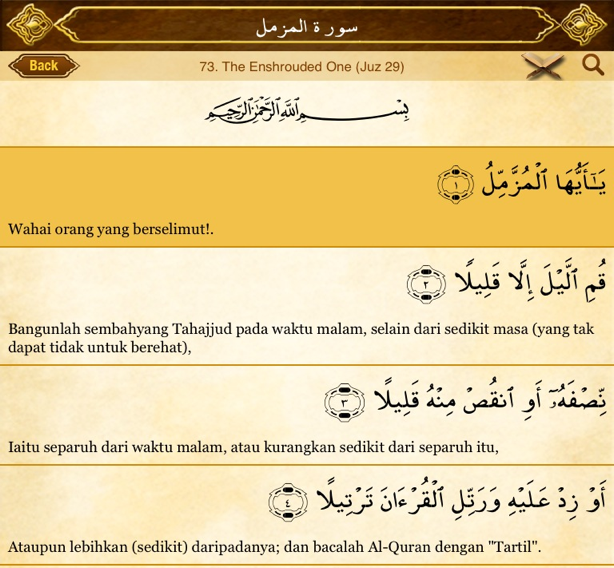 سورة المزمل
Back
73. The Enshrouded One (Juz 29)
بِسْمِ ٱللَّهِ ٱلرَّحْمَٰنِ ٱلرَّحِيمِ
يَٰٓأَيُّهَا ٱلْمُزَّمِّلُ ١
Wahai orang yang berselimut!.
قُمِ ٱلَّيْلَ إِلَّا قَلِيلًا ٢
Bangunlah sembahyang Tahajjud pada waktu malam, selain dari sedikit masa (yang tak
dapat tidak untuk berehat),
نِّصْفَهُۥٓ أَوِ ٱنقُصْ مِنْهُ قَلِيلًا ٣
Iaitu separuh dari waktu malam, atau kurangkan sedikit dari separuh itu,
أَوْ زِدْ عَلَيْهِ وَرَتِّلِ ٱلْقُرْءَانَ تَرْتِيلًا ٤
Ataupun lebihkan (sedikit) daripadanya; dan bacalah Al-Quran dengan "Tartil".